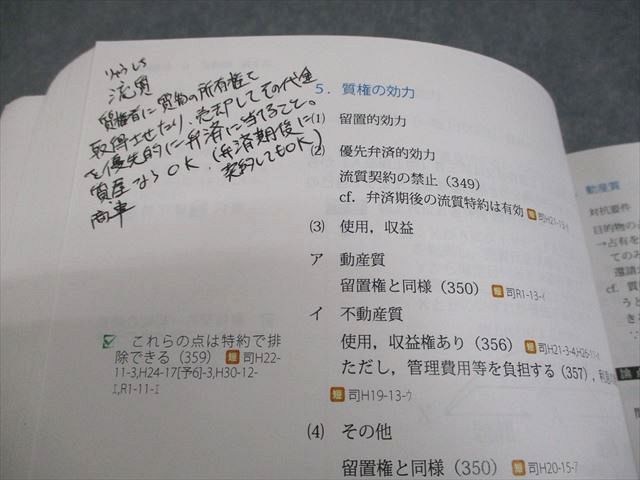 りゅうしち
流質
質権者に質物の所有権を
取得させたり、売却してその代金
を優先的に弁済に当てること。
質産ならOK.(弁済期後に
契約してもOK)
商事
5. 質権の効力
(1) 留置的効力
(2) 優先弁済的効力
流質契約の禁止(349)
cf. 弁済期後の流質特約は有効 短 司H21-13-
(3) 使用，収益
ア 動産質
留置権と同様(350) 短 司R1-13-イ
イ 不動産質
使用，収益権あり(356) 短 司H21-3-4,H26-11-
ただし，管理費用等を負担する(357)，利息
短 司H19-13-ウ
(4) その他
留置権と同様(350) 短 司H20-15-
これらの点は特約で排
除できる(359) 短 司H22-
11-3,H24-17[予6]-3,H30-12-
I,R1-11-I
動産質
対抗要件
目的物の占
→占有を
てのみ
還請
cf. 質
うと
きる